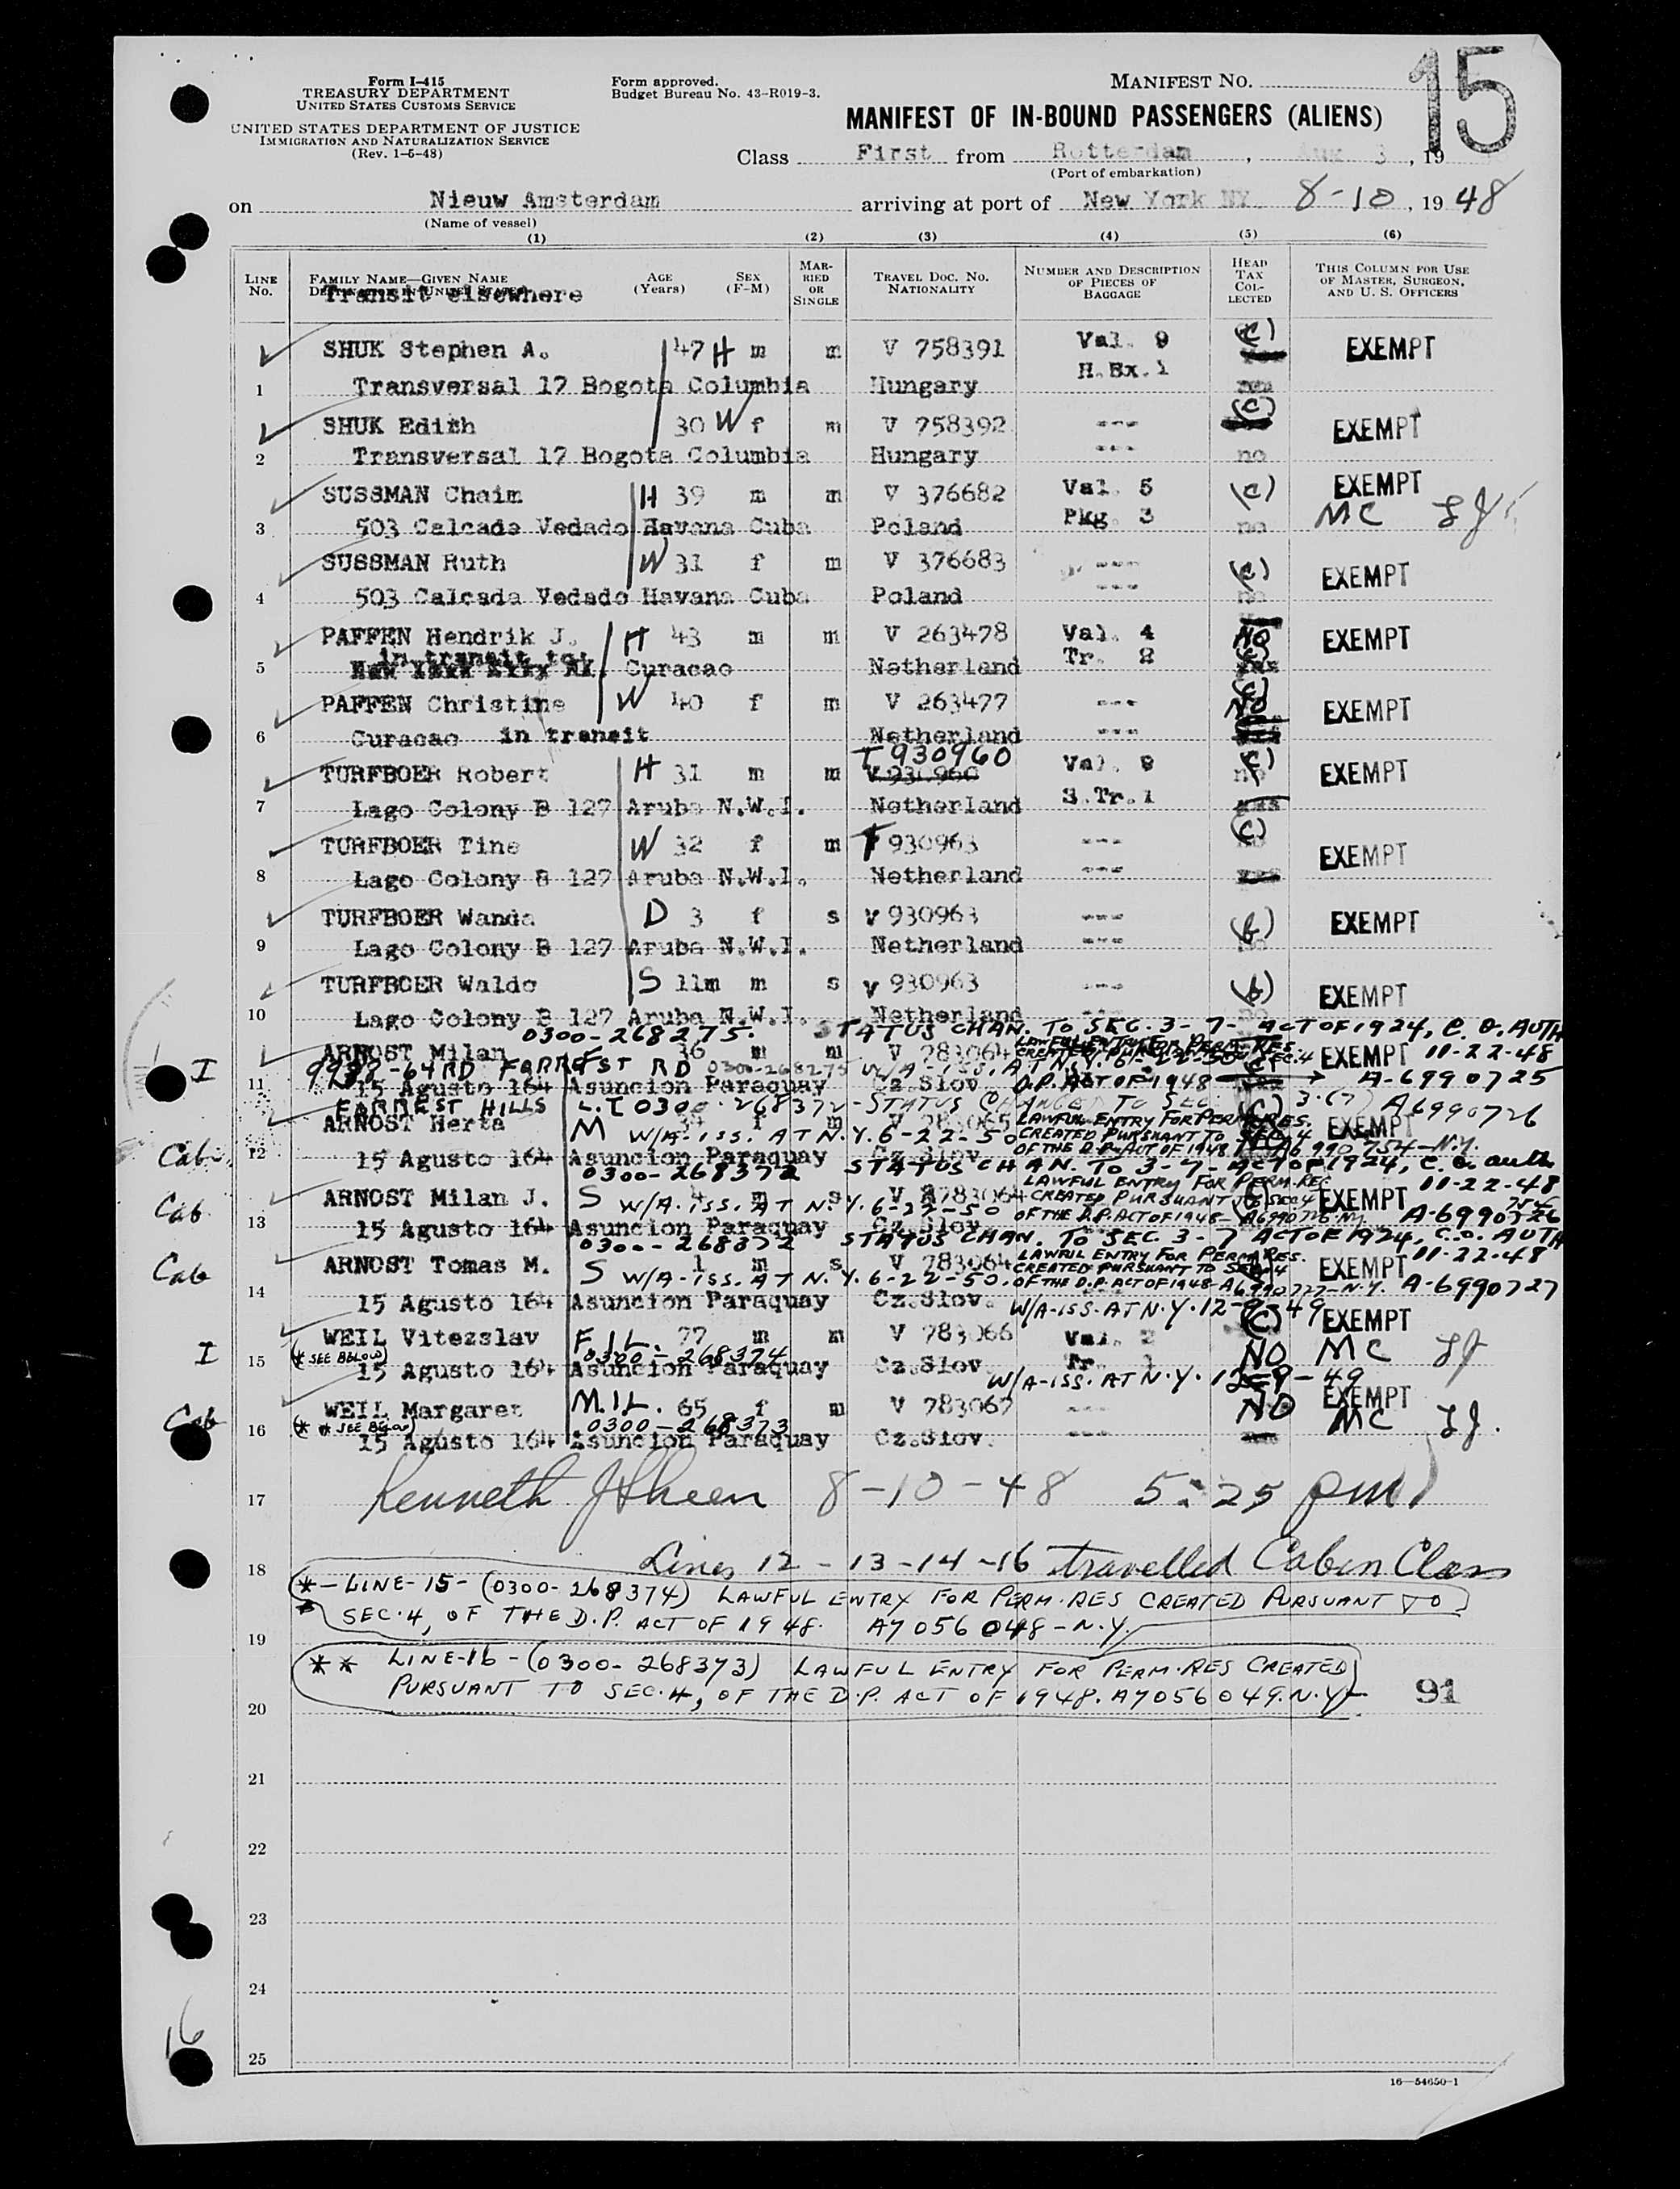 15
Form I-415
TREASURY DEPARTMENT
UNITED STATES CUSTOMS SERVICE
UNITED STATES DEPARTMENT OF JUSTICE
IMMIGRATION AND NATURALIZATION SERVICE
(Rev. 1-5-48)
Form approved.
Budget Bureau No. 43-R019-3.
MANIFEST NO.
MANIFEST OF IN-BOUND PASSENGERS (ALIENS)
Class First from Rotterdam, Aug 3, 19
(Port of embarkation)
on Nieuw Amsterdam arriving at port of New York NY. 8-10, 1948
(Name of vessel)
(1) (2) (3) (4) (5) (6)
LINE No.
FAMILY NAME—GIVEN NAME
DESTINATION IN UNITED STATES
Transit elsewhere
AGE (Years)
SEX (F-M)
MARRIED OR SINGLE
TRAVEL DOC. NO. NATIONALITY
NUMBER AND DESCRIPTION OF PIECES OF BAGGAGE
HEAD TAX COLLECTED
THIS COLUMN FOR USE OF MASTER, SURGEON, AND U. S. OFFICERS
SHUK Stephen A. 47 H m m V 758391 Val. 9 (c) EXEMPT
1 Transversal 17 Bogota Columbia Hungary H.Bx.1
SHUK Edith 30 W f m V 758392 --- (c) EXEMPT
2 Transversal 17 Bogota Columbia Hungary --- no
SUSSMAN Chaim H 39 m m V 376682 Val. 5 (c) EXEMPT
3 503 Calcada Vedado Havana Cuba Poland Pkg. 3 no MC
SUSSMAN Ruth W 31 f m V 376683 --- (c) EXEMPT
4 503 Calcada Vedado Havana Cuba Poland --- no
PAFFEN Hendrik J. H 43 m m V 263478 Val. 4 NO EXEMPT
in transit to:
5 Curacao Netherland Tr. 2 (c)
PAFFEN Christine W 40 f m V 263477 --- (c) NO EXEMPT
6 Curacao in transit Netherland ---
T 930960
TURFBOER Robert H 31 m m V 930960 Val. 8 (c) EXEMPT
7 Lago Colony B 127 Aruba N.W.I. Netherland S.Tr.1
TURFBOER Tine W 32 f m T 930963 --- (c) EXEMPT
8 Lago Colony B 127 Aruba N.W.I. Netherland ---
TURFBOER Wanda D 3 f s V 930963 --- (b) EXEMPT
9 Lago Colony B 127 Aruba N.W.I. Netherland --- no
TURFBOER Waldo S 11m m s V 930963 --- (b) EXEMPT
10 Lago Colony B 127 Aruba N.W.I. Netherland
0300-268275. STATUS CHAN. TO SEC. 3-7-ACT OF 1924, C.O. AUTH
ARNOST Milan 36 m m V 783064 EXEMPT 11-22-48
I FORREST RD 0300-268275 W/A-ISS. AT N.Y. 6-22-50 D.P. ACT OF 1948 A-6990725
11 15 Agusto 164 Asuncion Paraguay Cz.Slov.
FORREST HILLS L.T 0300-268372-STATUS CHANGED TO SEC. 3.(7) A6990726
ARNOST Herta m V 783065 LAWFUL ENTRY FOR PERM. RES. EXEMPT
M W/A-ISS. AT N.Y. 6-22-50 CREATED PURSUANT TO SEC. 4
Cab. 12 15 Agusto 164 Asuncion Paraguay Cz.Slov. OF THE D.P. ACT OF 1948
0300-268372 STATUS CHAN. TO 3-7-ACT OF 1924, C.O. auth
LAWFUL ENTRY FOR PERM. REC 11-22-48
Cab ARNOST Milan J. S 4 m s V 783064 CREATED PURSUANT TO SEC 4 EXEMPT
W/A-ISS. AT N.Y. 6-22-50 OF THE D.P. ACT OF 1948-A6990726 NY A-6990726
13 15 Agusto 164 Asuncion Paraguay Cz.Slov.
0300-268372 STATUS CHAN. TO SEC 3-7 ACT OF 1924, C.O. AUTH
LAWFUL ENTRY FOR PERM RES. 11-22-48
Cab ARNOST Tomas M. S 1 m s V 783064 CREATED PURSUANT TO SEC. 4 EXEMPT
W/A-ISS. AT N.Y. 6-22-50. OF THE D.P. ACT OF 1948-A6990727-N.Y. A-6990727
14 15 Agusto 164 Asuncion Paraguay Cz.Slov. W/A-ISS. AT N.Y. 12-9-49
WEIL Vitezslav F.I.L. 77 m m V 783066 Val. 2 (c) EXEMPT
I (* SEE BELOW) 0300-268374 NO MC
15 15 Agusto 164 Asuncion Paraguay Cz.Slov. Tr. 1
W/A-ISS. AT N.Y. 12-9-49
Cab WEIL Margaret M.I.L. 65 f m V 783067 --- NO EXEMPT
(** SEE BELOW) 0300-268373 MC
16 15 Agusto 164 Asuncion Paraguay Cz.Slov. ---
17 Kenneth 8-10-48 5:25 pm
18 Lines 12-13-14-16 travelled Cabin Class
*-LINE-15-(0300-268374) LAWFUL ENTRY FOR PERM. RES CREATED PURSUANT TO
SEC. 4, OF THE D.P. ACT OF 1948. A7056048-N.Y.
19
** LINE-16-(0300-268373) LAWFUL ENTRY FOR PERM. RES CREATED
PURSUANT TO SEC. 4, OF THE D.P. ACT OF 1948. A7056049. N.Y. 91
20
21
22
23
24
16
25
16—54650-1